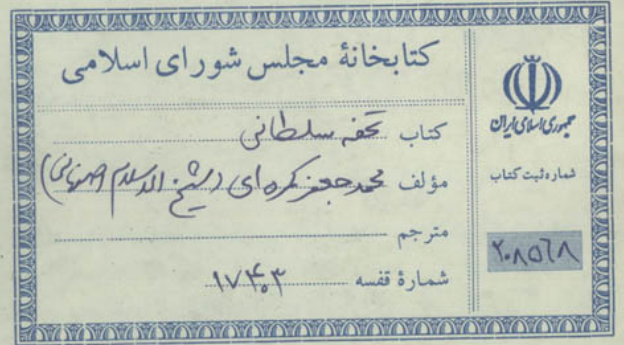 کتابخانهٔ مجلس شورای اسلامی
کتاب تحفه سلطانی
مؤلف محمد جعفر کمره‌ای (شیخ الاسلام اصفهانی)
مترجم
شمارهٔ قفسه ۱۷۴۰۳
جمهوری اسلامی ایران
شماره ثبت کتاب
۲۰۸۵۶۸